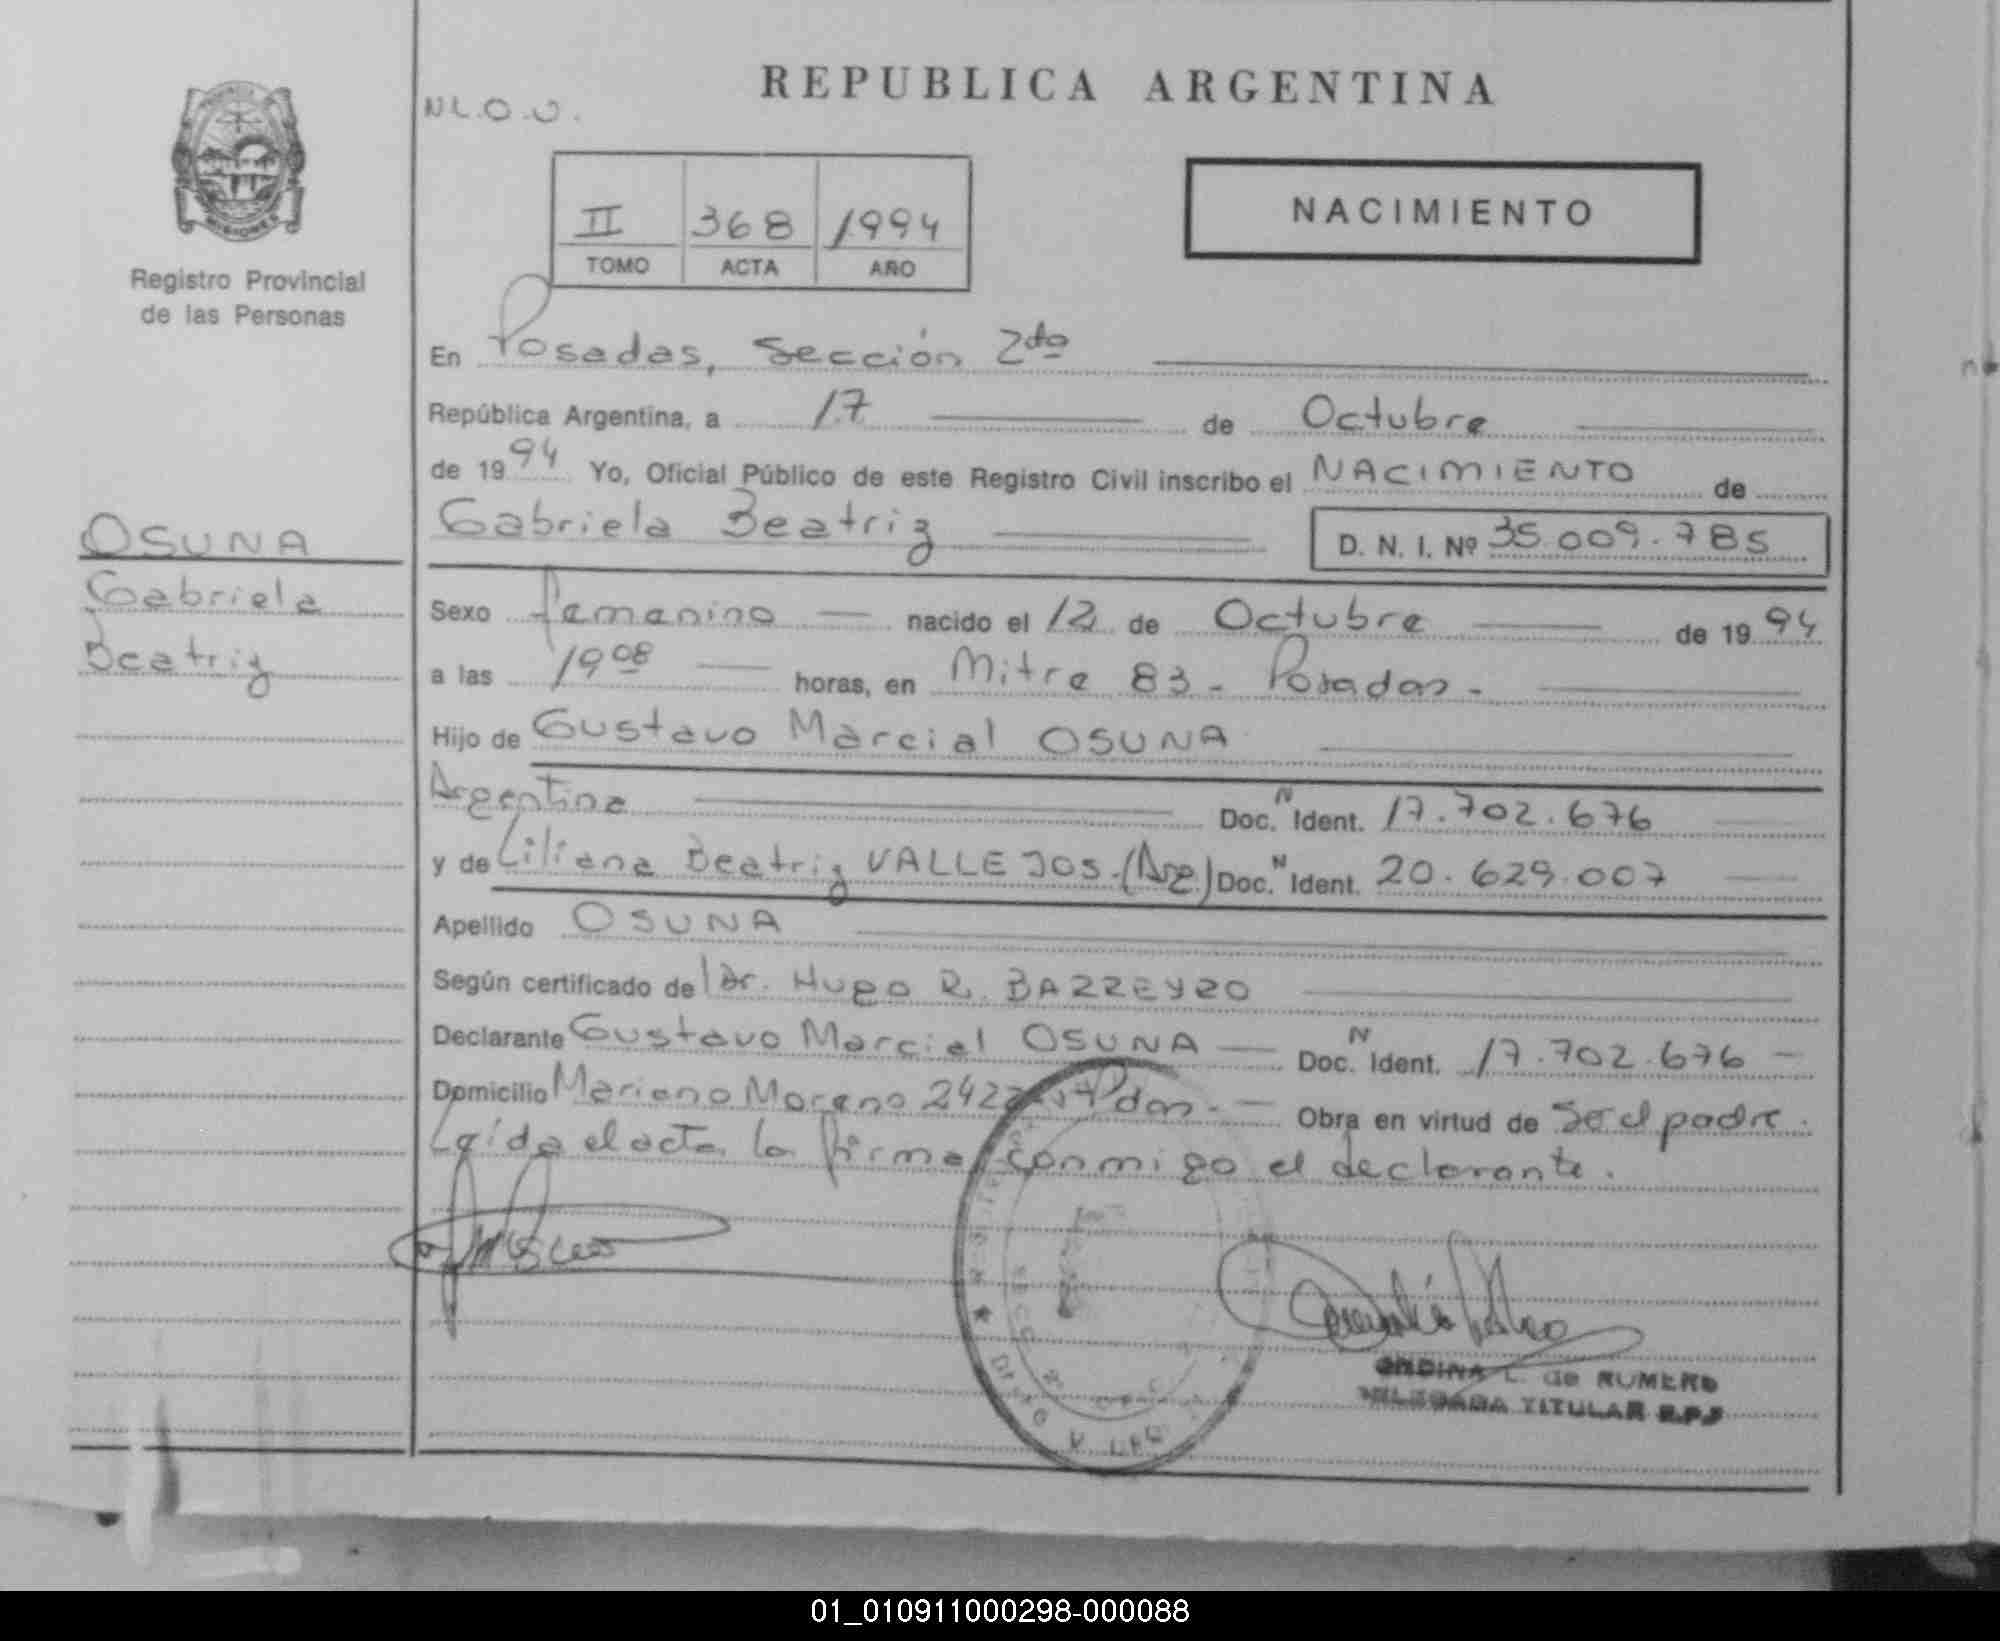 REPUBLICA ARGENTINA
NL.O.U.
MISIONES
Registro Provincial
de las Personas
II 368 1994
TOMO ACTA AÑO
NACIMIENTO
En Posadas, Sección 2da
República Argentina, a 17 de Octubre
de 1994 Yo, Oficial Público de este Registro Civil inscribo el NACIMIENTO de
Gabriela Beatriz D. N. I. Nº 35.009.785
OSUNA
Gabriela
Beatriz
Sexo femenino nacido el 12 de Octubre de 1994
a las 19 08 horas, en Mitre 83 - Posadas -
Hijo de Gustavo Marcial OSUNA
Argentina Doc. N Ident. 17.702.676
y de Liliana Beatriz VALLEJOS. (Arg.) Doc. N Ident. 20.629.007
Apellido OSUNA
Según certificado de Dr. Hugo R. BARREYRO
Declarante Gustavo Marcial OSUNA Doc. N Ident. 17.702.676
Domicilio Mariano Moreno Pdas. Obra en virtud de Ser el padre.
Leída el acta la firma conmigo el declarante.
L. de ROMERO
TITULAR R.P.P
01_010911000298-000088